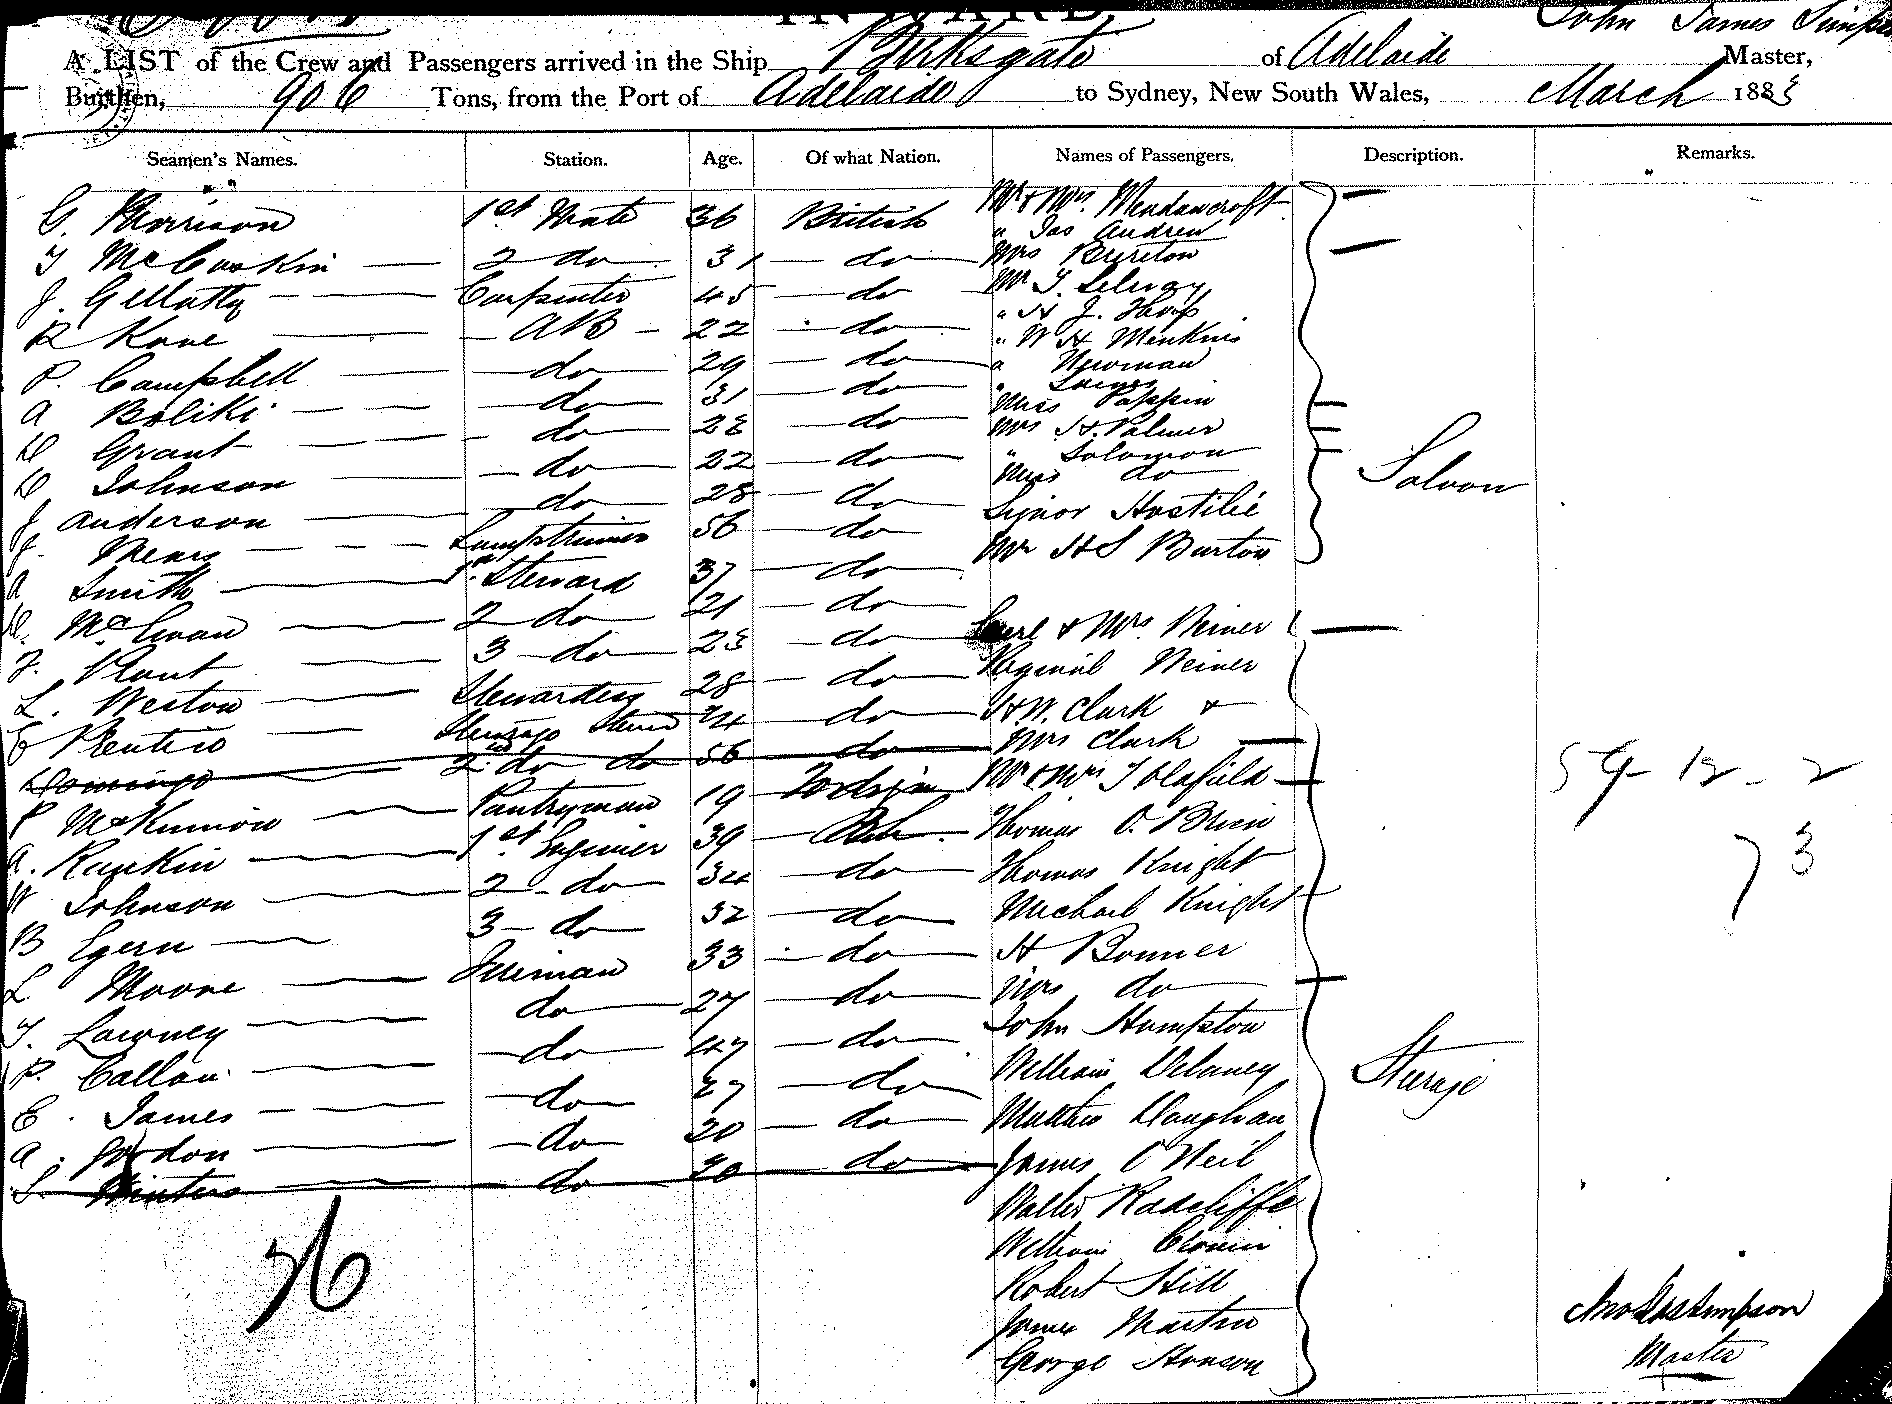 INWARD
John James Simpson
A LIST of the Crew and Passengers arrived in the Ship Birksgate of Adelaide Master,
Burthen, 906 Tons, from the Port of Adelaide to Sydney, New South Wales, March 1883
Seamen's Names. Station. Age. Of what Nation. Names of Passengers. Description. Remarks.
G. Morrison 1st Mate 36 British Mr & Mrs. Meadowcroft
" Jas Andrew
2 do 31 do Mrs
J. Gellatly Carpenter 45 do Mr T.
" H J.
R Kane AB 22 do " W H Menkins
P. Campbell do 29 do " Newman
A Boliki do 31 do "
Miss Pappin
Grant do 28 do Mrs H. Palmer
Johnson do 22 do " Solomon
Miss do
J Anderson do 28 do Senor Hostilie Saloon
J. Mears Lamptrimmer 56 do Mr H S Burton
A Smith 1st Steward 37 do
2 do 21 do Carl & Mrs. Reiner
F. Plant 3 do 23 do Reginal Reiner
L. Weston Stewardess 28 do H.W. Clark &
E Prentice 24 do Mrs Clark
Domingo 2nd do do 56 do Mr & Mrs T Olafield
P McKinnon Pantryman 19 Thomas O. Brien
59 12 2
A. Rankin 1st Engineer 39 do Thomas Knight
73
W Johnson 2 do 34 do Michael Knight
B Egern 3 do 32 do H Bonner
L Moore Fireman 33 do Mrs do
T. Lowney do 27 do John Humpston
P. Callan do 47 do William Delaney Steerage
E. James do 27 do Matthew Vaughan
A. Gordon do 20 do James O'Neil
S. Winters do 20 do Walter Radcliffe
36
William Cronin
Robert Hill
James Martin
George Stonson
Jno Jas Simpson
Master